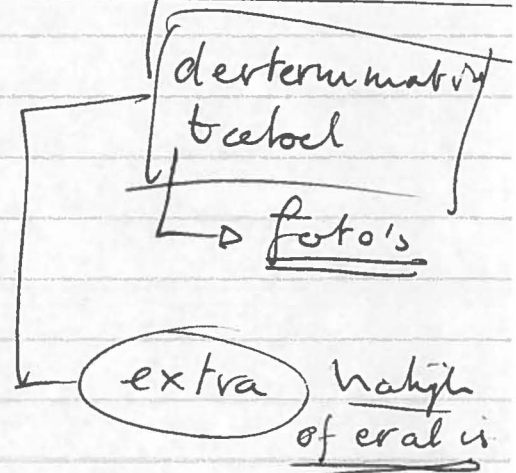 determinatie
tabel
foto's
extra nakijken
of er al is